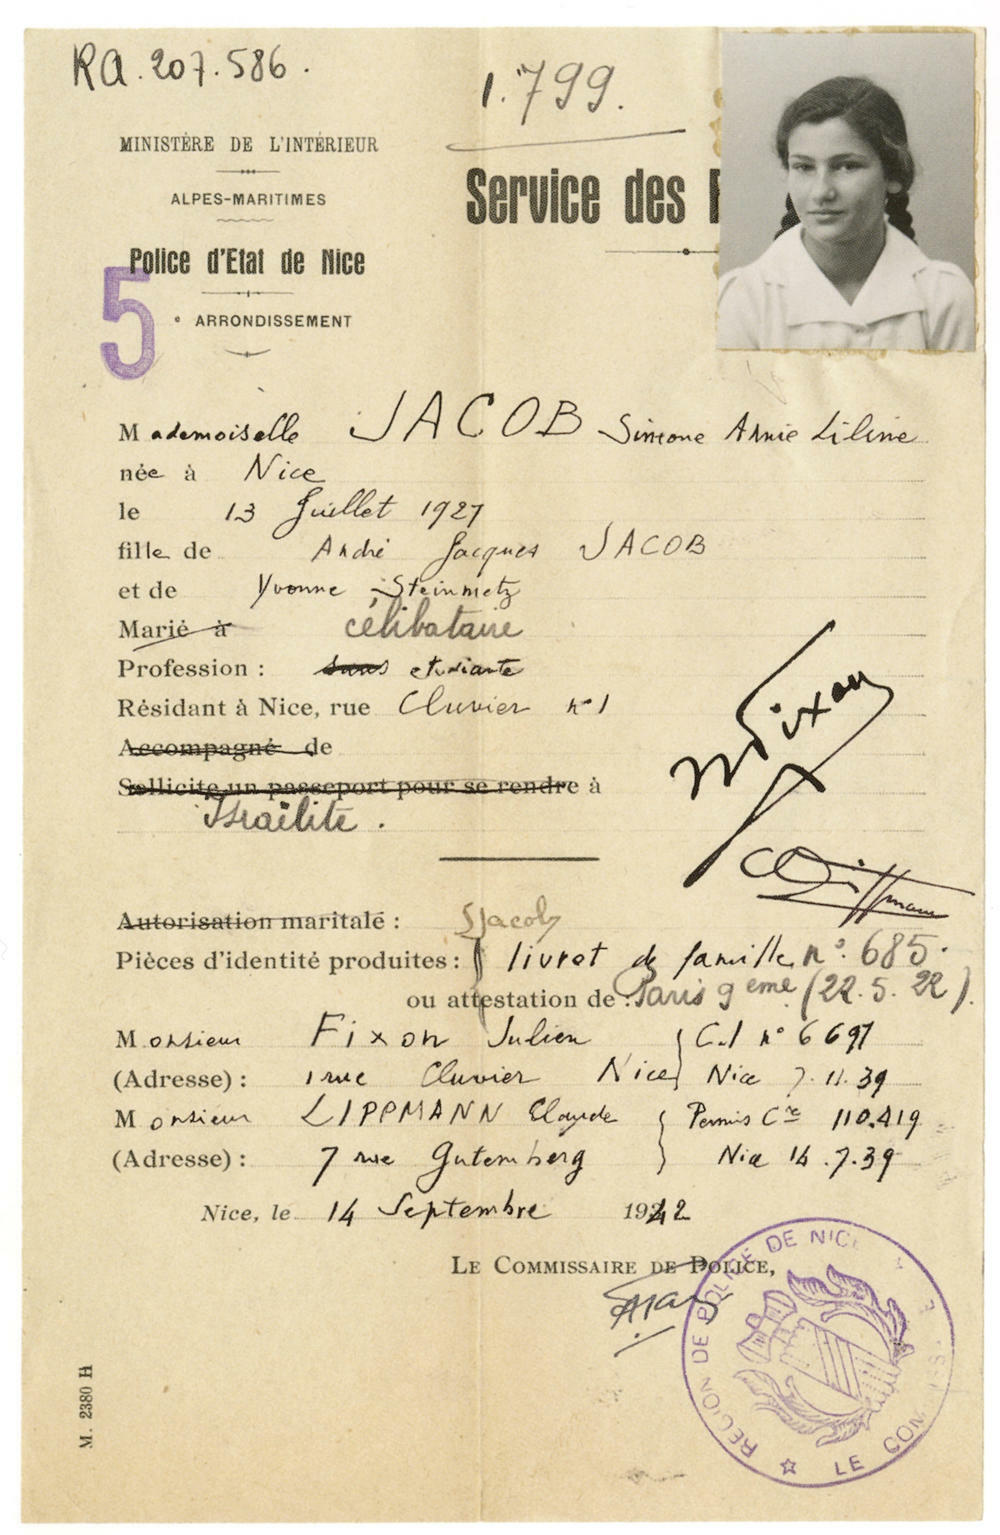 RA.207.586.
1.799.
MINISTÈRE DE L'INTÉRIEUR
ALPES-MARITIMES
Service des P
Police d'Etat de Nice
5
e ARRONDISSEMENT
Mademoiselle JACOB Simone Annie Liline
née à Nice
le 13 Juillet 1927
fille de André Jacques JACOB
et de Yvonne Steinmetz
Marié à célibataire
Profession : sans etudiante
Résidant à Nice, rue Cluvier n° 1
Accompagné de
Sollicite un passeport pour se rendre à
Israélite.
JFixon
Autorisation maritale : SJacob
Pièces d'identité produites : livret de famille n° 685.
ou attestation de : Paris 9eme (22.5.22).
Monsieur Fixon Julien } C.I n° 6697
(Adresse) : 1 rue Cluvier Nice } Nice 7.11.39
Monsieur LIPPMANN Claude } Permis Cre 110.419
(Adresse) : 7 rue Gutemberg } Nice 14.7.39
Nice, le 14 Septembre 1942
LE COMMISSAIRE DE POLICE,
REGION DE POLICE DE NICE
LE COMMISS
M. 2380 H